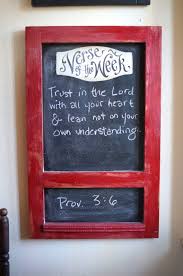 Verse
of the Week
Trust in the Lord
with all your heart
& lean not on your
own understanding.
Prov. 3:6